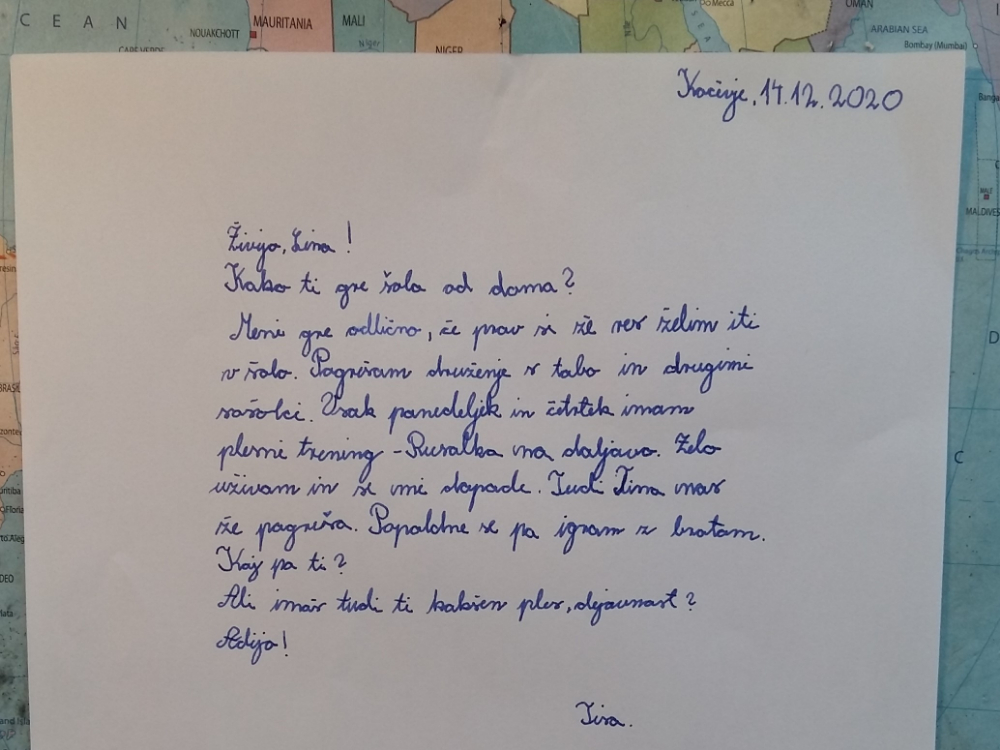 C E A N
NOUAKCHOTT
MAURITANIA
MALI
Niger
NIGER
CAPE VERDE
Mecca
SEA
OMAN
ARABIAN SEA
Bombay (Mumbai)
MALDIVES
Kočevje, 14.12.2020
Živijo, Lina!
Kako ti gre šola od doma?
Meni gre odlično, če prav si že res želim iti
v šolo. Pogrešam druženje s tabo in drugimi
sošolci. Vsak ponedeljek in četrtek imam
plesni trening - Rusalka na daljavo. Zelo
uživam in se mi dopade. Tudi Tina nas
že pogreša. Popoldne se pa igram z bratom.
Kaj pa ti?
Ali imaš tudi ti kakšen ples, dejavnost?
Adijo!